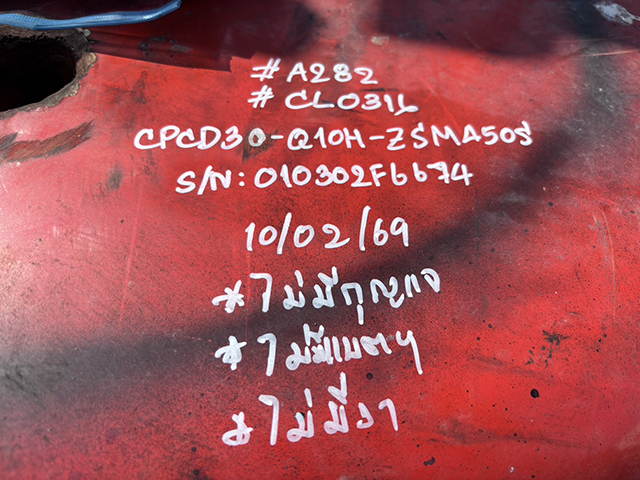 #A282
#CL0316
CPCD30-Q10H-ZSMA50S
S/N: 010302F6674
10/02/69
*ไม่มีกุญแจ
*ไม่มีแบตฯ
*ไม่มีงา